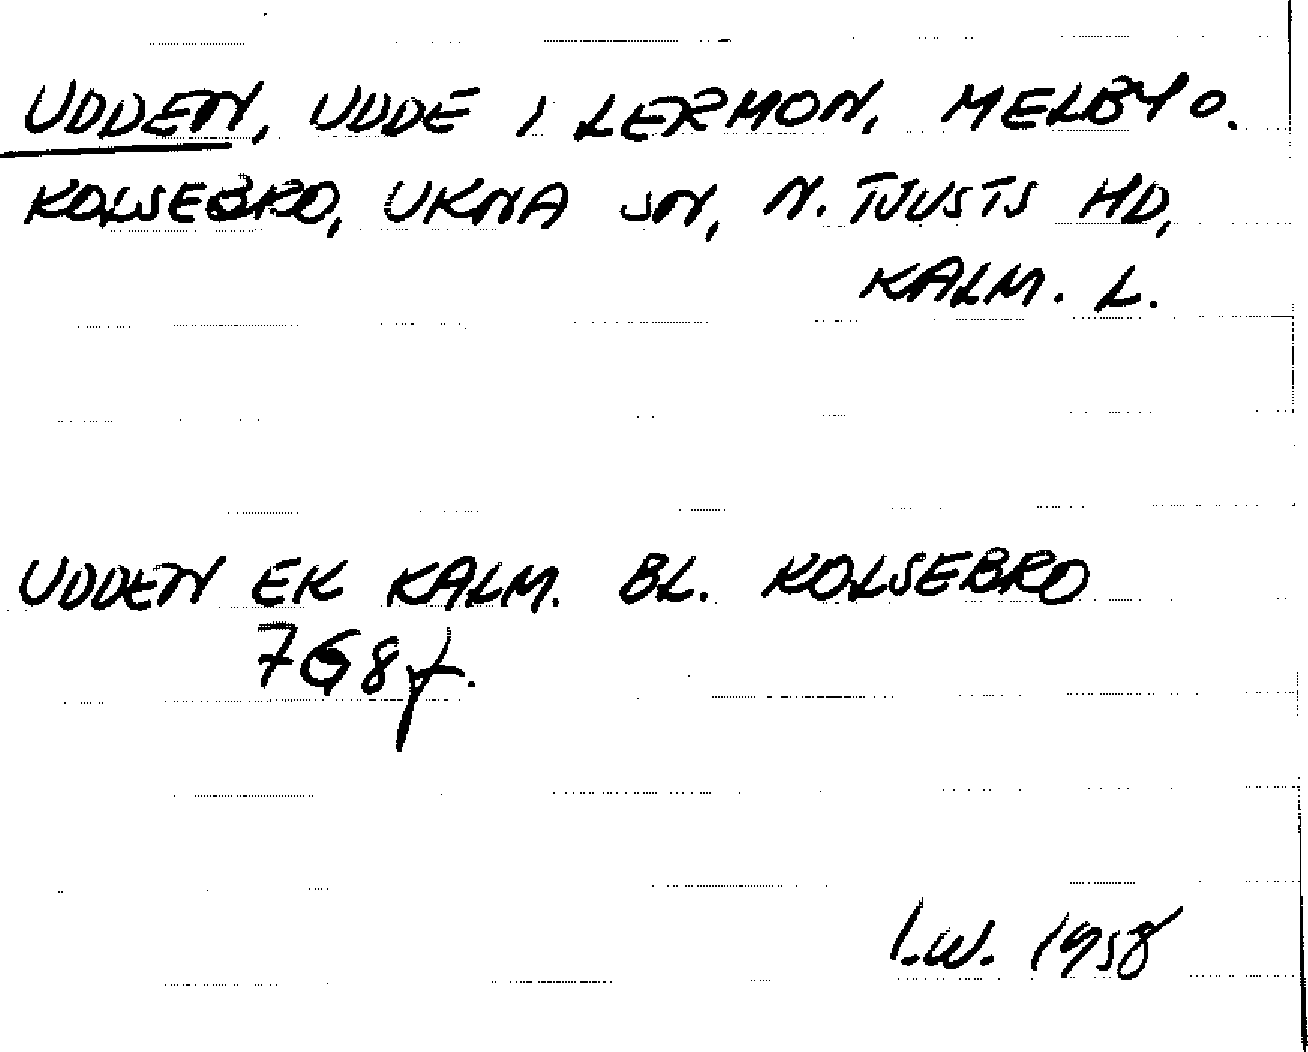 UDDEN, UDDE I LERMON, MELBY O.
KOLSEBRO, UKNA SN, N. TJUSTS HD,
KALM. L.
UDDEN EK KALM. BL. KOLSEBRO
7G8f.
I.W. 1958